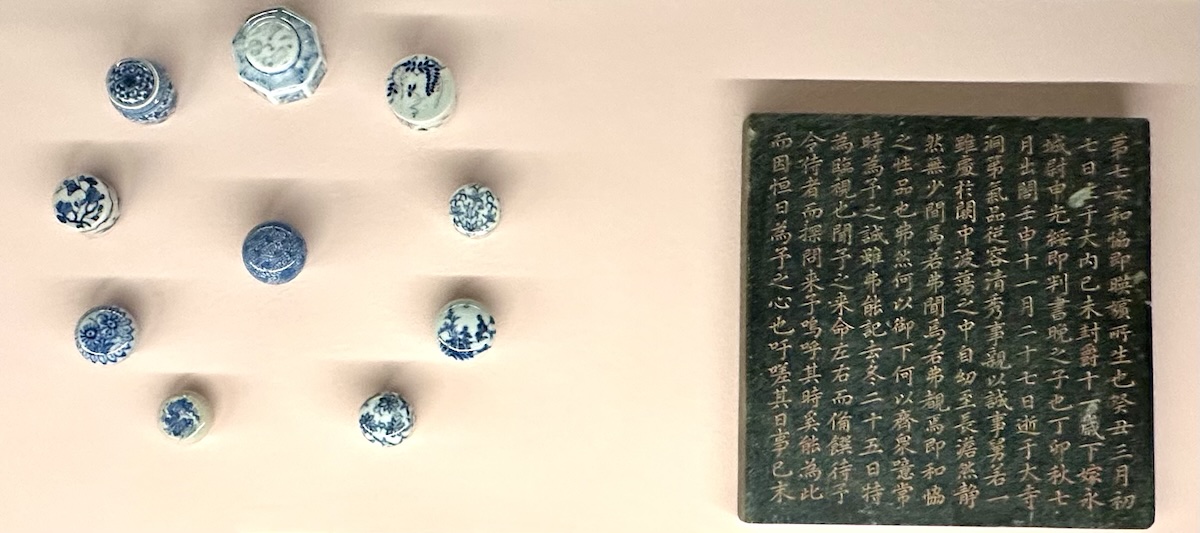 第七女和協即暎嬪所生也癸丑三月初
七日生于大内己未封爵十一歳下嫁永
城尉申光綏即判書晩之子也丁卯秋七
月出閤壬申十一月二十七日逝于大寺
洞第氣品従容清秀事親以誠事舅若一
雖處禁闥中波蕩之中自幼至長澹然静
然無少間焉若弗聞焉若弗覩焉即和恊
之性品也弗然何以御下何以齊衆噫常
時為予之誠雖弗能記去冬二十五日特
為臨視也聞予之来命左右而備饌待予
令侍者而探問来予嗚呼其時奚能為此
而因恒日為予之心也吁嗟其日事已末